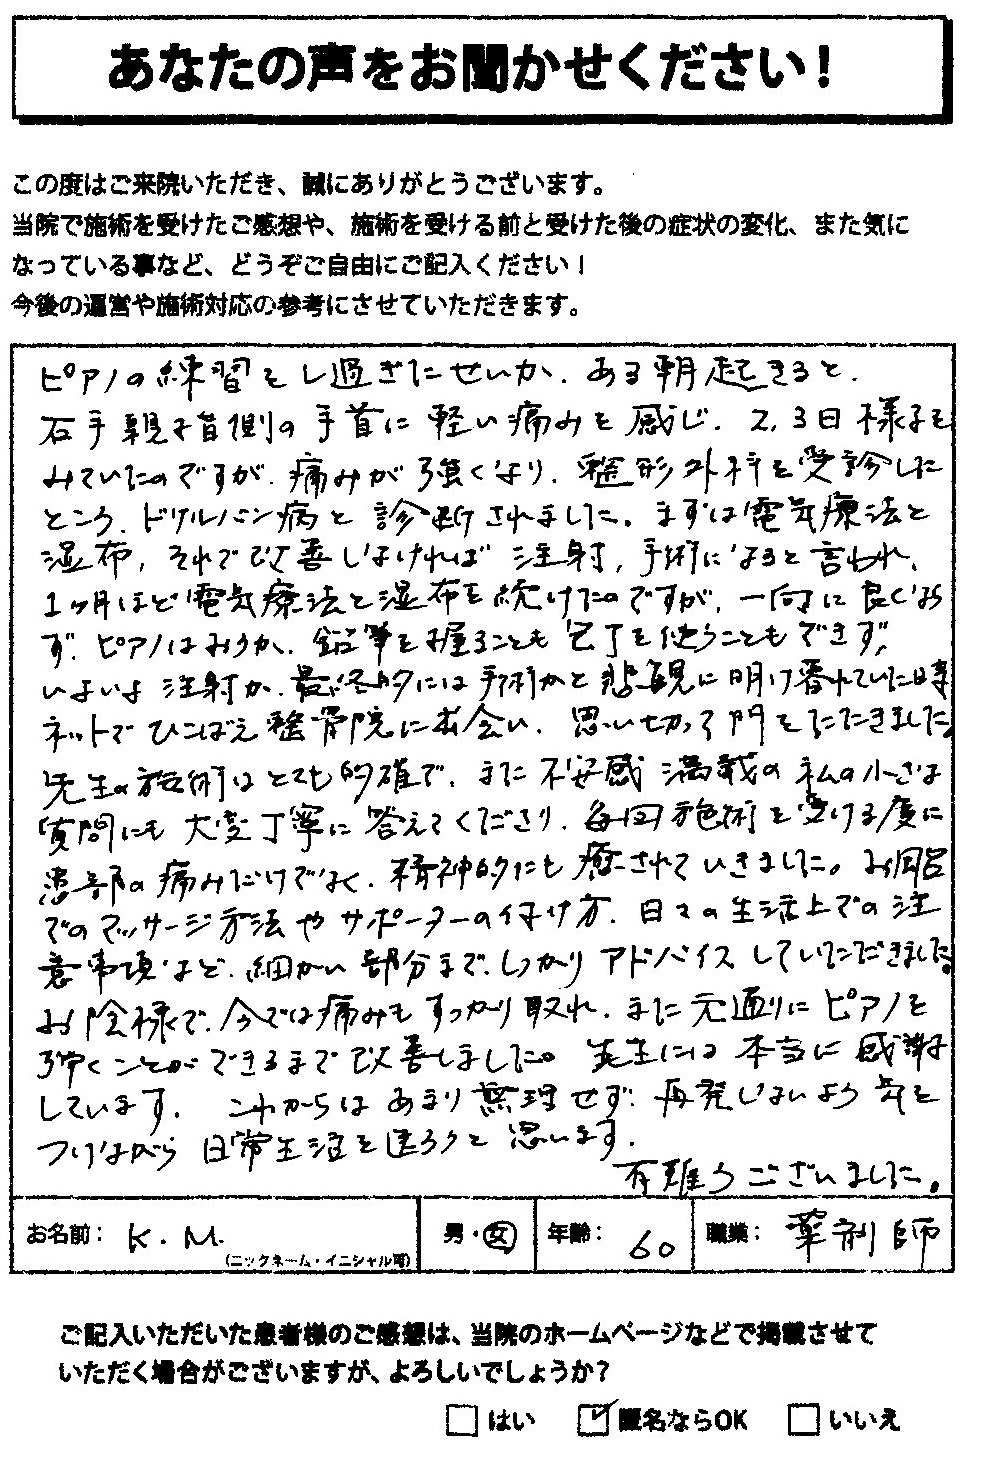 あなたの声をお聞かせください！
この度はご来院いただき、誠にありがとうございます。
当院で施術を受けたご感想や、施術を受ける前と受けた後の症状の変化、また気に
なっている事など、どうぞご自由にご記入ください！
今後の運営や施術対応の参考にさせていただきます。
ピアノの練習をし過ぎたせいか、ある朝起きると、
右手親指側の手首に軽い痛みを感じ、2,3日様子を
みていたのですが、痛みが強くなり、整形外科を受診した
ところ、ドケルバン病と診断されました。まずは電気療法と
湿布、それで改善しなければ注射、手術になると言われ、
1ヶ月ほど電気療法と湿布を続けたのですが、一向に良くなら
ず、ピアノはおろか、鉛筆を握ることも包丁を使うこともできず、
いよいよ注射か、最終的には手術かと悲観に明け暮れていた時
ネットでひこばえ整骨院に出会い、思い切って門をたたきました。
先生の施術はとても的確で、また不安感満載の私の小さな
質問にも大変丁寧に答えてくださり、毎回施術を受ける度に
患部の痛みだけでなく、精神的にも癒されていきました。お風呂
でのマッサージ方法やサポーターの付け方、日々の生活上での注
意事項など、細かい部分まで、しっかりアドバイスしていただきました。
お陰様で、今では痛みもすっかり取れ、また元通りにピアノを
弾くことができるまで改善しました。先生には本当に感謝
しています。これからはあまり無理せず、再発しないよう気を
つけながら日常生活を送ろうと思います。
有難うございました。
お名前： K.M. （ニックネーム・イニシャル可） 男・女 年齢： 60 職業： 薬剤師
ご記入いただいた患者様のご感想は、当院のホームページなどで掲載させて
いただく場合がございますが、よろしいでしょうか？
□ はい ☑ 匿名ならOK □ いいえ